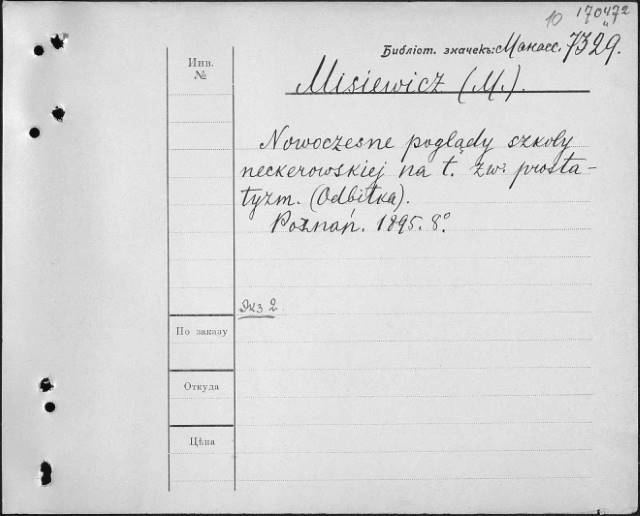 10 170472
Библіот. значекъ: Манасс. 7329.
Инв. №
Misiewicz (M.).
Nowoczesne poglądy szkoły
neckerowskiej na t. zw. prosta-
tyzm. (Odbitka).
Poznań. 1895. 8°
Экз 2
По заказу
Откуда
Цѣна